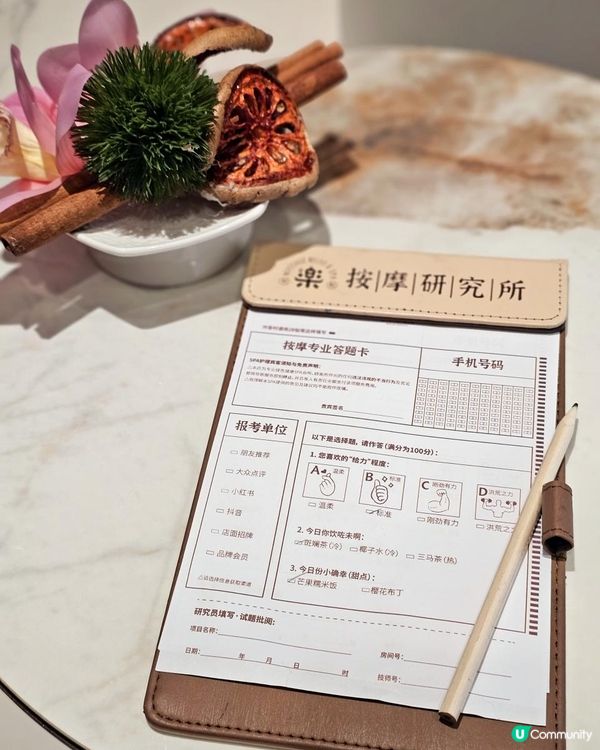 楽 按|摩|研|究|所
按摩专业答题卡
手机号码
SPA护理宾客须知与免责声明:
贵宾签名
报考单位
朋友推荐
大众点评
小红书
抖音
店面招牌
品牌会员
以下是选择题,请作答(满分为100分):
1. 您喜欢的"给力"程度:
A 温柔
B 标准
C 刚劲有力
D 洪荒之力
温柔
标准
刚劲有力
洪荒之
2. 今日你饮咗未啊:
斑斓茶(冷) 椰子水(冷) 三马茶(热)
3. 今日份小确幸(甜点):
芒果糯米饭 樱花布丁
研究员填写·试题批阅:
项目名称:
房间号:
日期: 年 月 日 时
技师号:
U Community